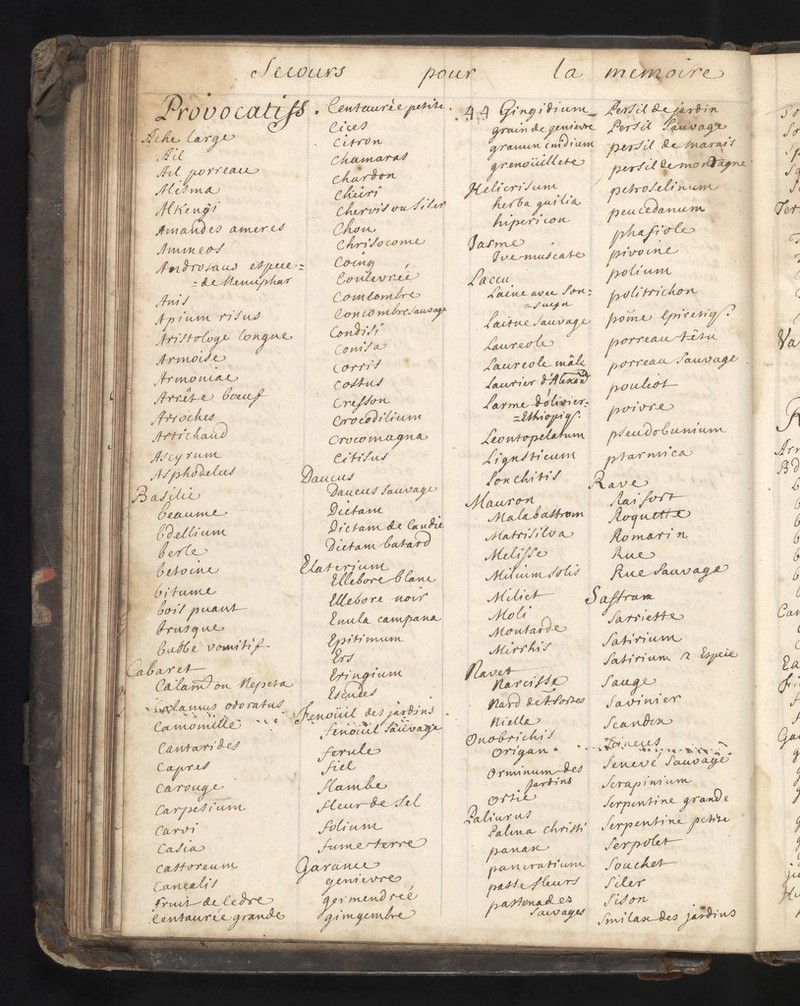 Secours pour la memoire
Provocatifs.
Ache large
Ail
Ail porreau
Alisma
Alkengi
Amandes ameres
Ammeos
Androsaus espece=
=de Nenuphar
Anis
Apium risus
Aristologe longue
Armoise
Armoniac
Arrête bœuf
Arroches
Artichaud
Ascyrum
Asphodelus
Basilic
beaume
bdellium
berle
betoine
bitume
bois puant
brusque
bulbe vomitif
Cabaret
Calamt ou Nepeta
calamus odoratus
Camomille
Cantarides
Capres
Carouge
Carpesium
Carvi
Casia
castoreum
Caucalis
fruit de Cedre
Centaurée grande
Centaurée petite.
Cices
Citron
Chamaras
Chardon
Cheiri
Chervis ou Siler
Chou
Chrisocome
Coing
Coulevrée
Comcombre
Concombre sauvage
Condisi
Conisa
Corris
Costus
Cresson
Crocodilium
Crocomagna
Citisus
Daucus
Daucus sauvage
Dictam
Dictam de Candie
Dictam batard
Elaterium
Ellebore blanc
Ellebore noir
Enula campana
Epitimum
Ers
Eringium
Esceudes
Fenoüil des jardins
fenoüil Sauvage
ferule
fiel
flambe
fleur de Sel
folium
fume-terre
Garance
genievre
germendreé
gimgembre
44 Gingidium
grain de genievre
granum cnidium
grenoüillete
Helicrisum
herba guilia
hipericon
Jasme
Ive muscate
Lacca
Laine avec son=
=suyn
Laitue Sauvage
Laureole
Laureole mâle
Laurier d'Alexand
Larme d'olivier=
=Ethiopiq.
Leontopetalum
Lignsticum
Lonchitis
Mauron
Malabastrom
Matrisilva
Melisse
Milium solis
Miliet
Moli
Moutarde
Mirrhis
Navet
Narcisse
Nard
Nielle
Onobrichis
Origan.
Orminum des
jardins
Ortie
Paliurus
Palma Christi
panax
pancratium
passe fleurs
pastonades
Sauvages
Persil de jardin
Persil Sauvage
persil de marais
persil de montagne
petroselinum
peucedanum
phasiole
pivoine
polium
politrichon
pome Epiretiq.
porreau têtu
porreau Sauvage
pouliot
poivre
pseudobunium
ptarmica
Rave
Raisfort
Roquette
Romarin
Rue
Rue Sauvage
Saffram
Sarriette
Satirium
Satirium 2 Espece
Sauge
Savinier
Scandix
Senevé Sauvage
Serapinium
Serpentine grande
Serpentine petite
Serpolet
Souchet
Siler
Sison
Smilax des jardins